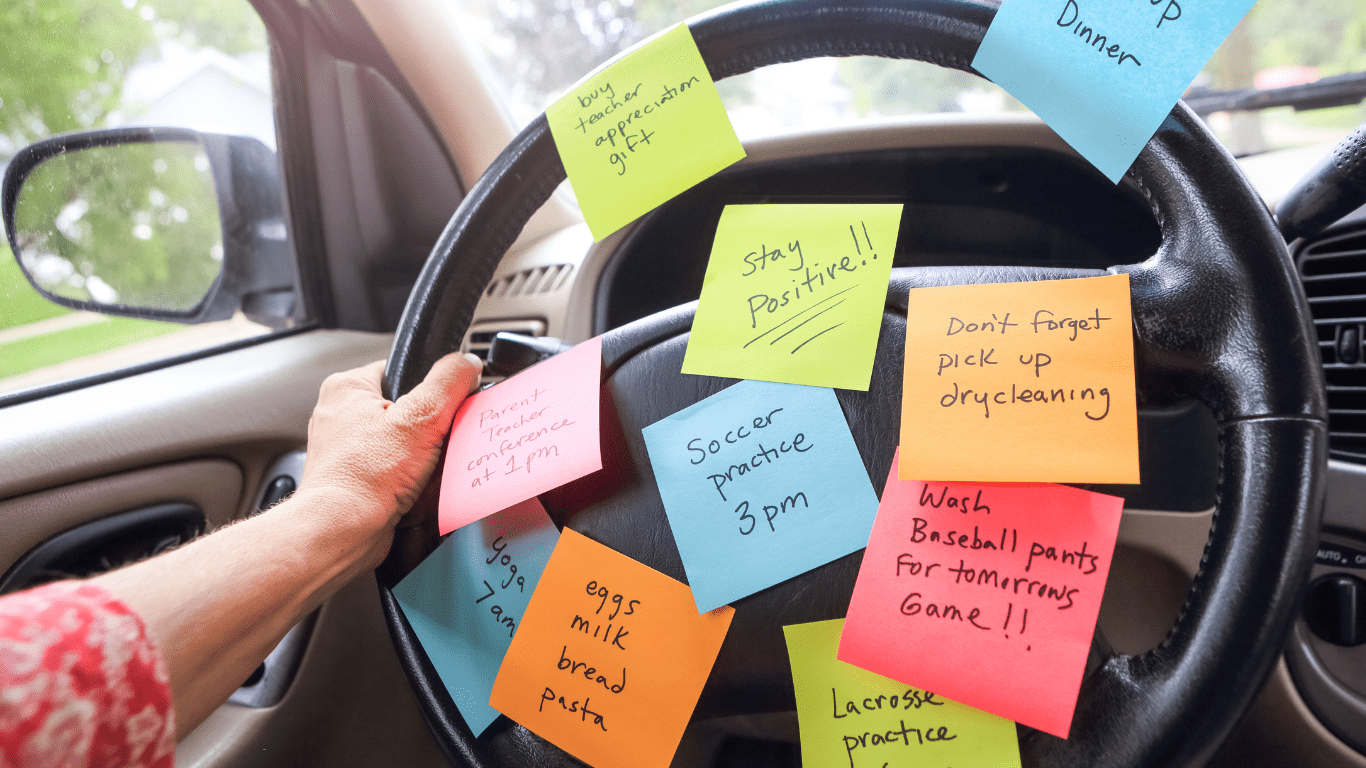 up
Dinner
buy
teacher
appreciation
gift
Stay
Positive!!
Don't forget
pick up
drycleaning
Parent
Teacher
conference
at 1pm
Soccer
practice
3pm
Wash
Baseball pants
for tomorrows
Game!!
Yoga
7am
eggs
milk
bread
pasta
Lacrosse
practice
AUTO